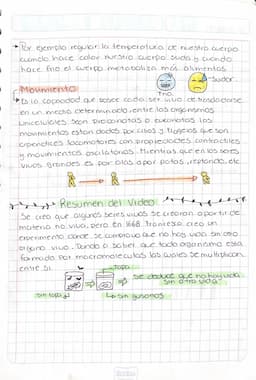 Por ejemplo regular la temperatura de nuestro cuerpo
cuando hace calor nuestro cuerpo suda y cuando
hace frio el cuerpo metaboliza más alimentos.
Sudor.
Frio.
Movimiento
Es la capacidad que posee cada ser vivo de trasladarse
en un medio determinado, entre los organismos
unicelulares sean procariotas o eucariotas los
movimientos estan dados por cilios y flagelos que son
apendices locomotores con propiedades contractiles
y movimientos oscilatorios. Mientras que en los seres
vivos grandes es por alas a por patas, reptando, etc.
Resumen del Video
Se creo que algunos seres vivos se crearon a partir de
materia no vivo, pero en 1668 Francisco creo un
experimento donde se comprobo que no hay vida sin otro
organo vivo. Dando a saber que todo organismo esta
formado por macromoleculas las cuales se multiplican
entre si.
tapa
se deduce que no hay vida
sin otra vida
sin tapa
sin gusanos